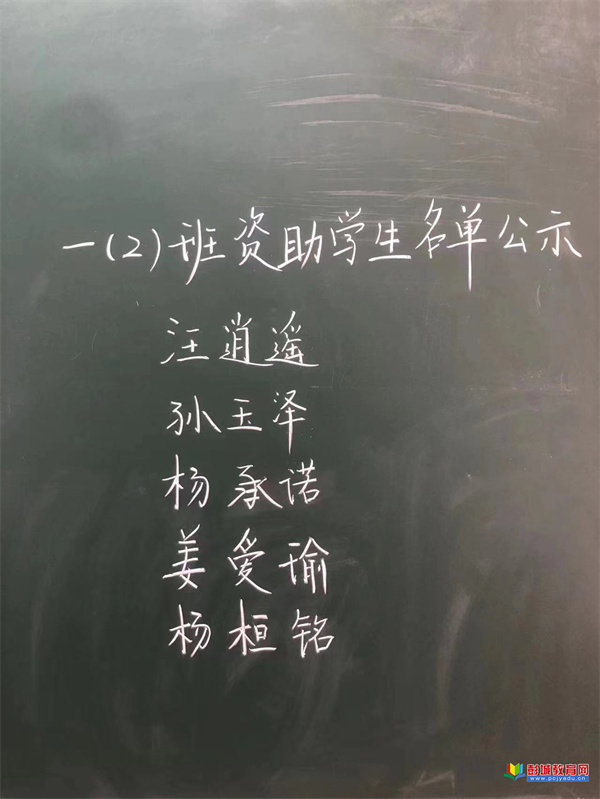 一(2)班资助学生名单公示
汪逍遥
孙玉泽
杨承诺
姜爱瑜
杨桓铭
彭城教育网
www.pcjyedu.cn